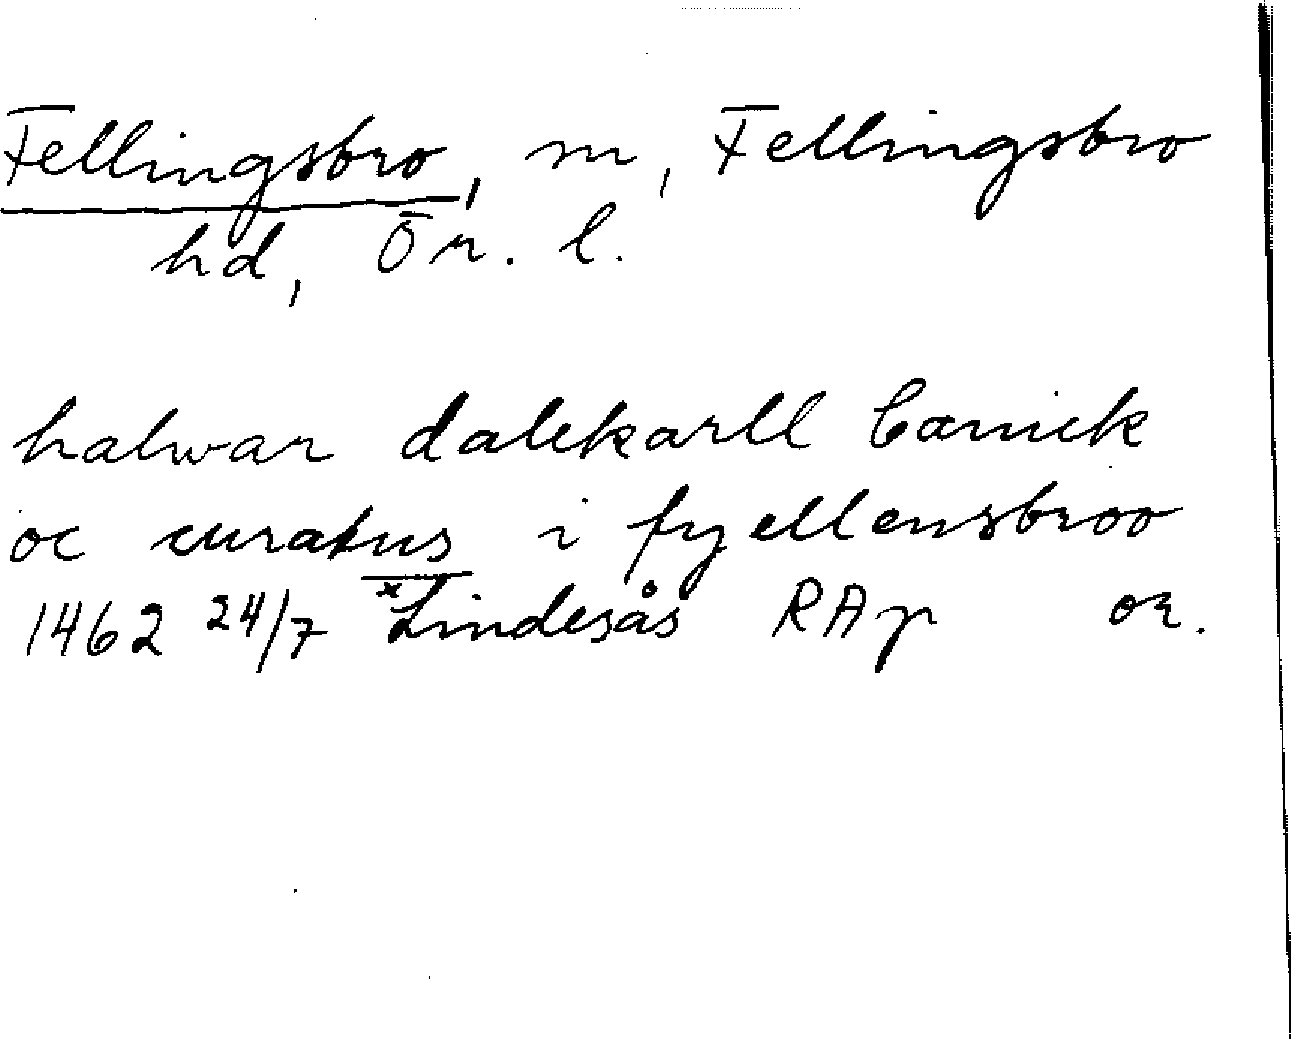 Fellingsbro, sn, Fellingsbro
hd, Ör. l.
halwar dalekarll Canick
oc curatus i fyellensbroo
1462 24/7 *Lindesås RAp or.